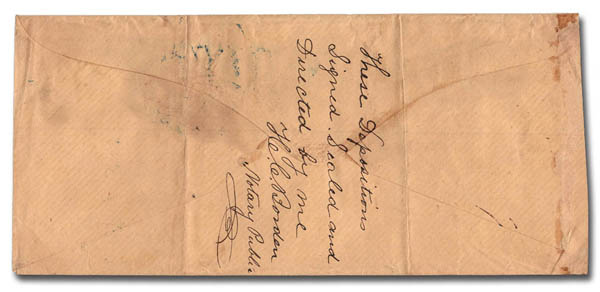 These Depositions
Signed. Sealed and
Directed by me
H. C. Borden
Notary Public